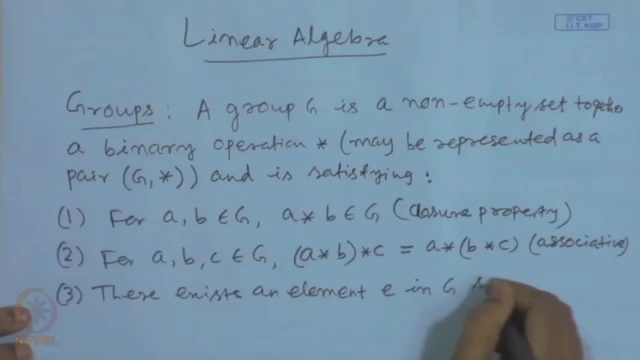 © CET
I.I.T. KGP
Linear Algebra
Groups : A group G is a non-empty set together
a binary operation * (may be represented as a
pair (G, *)) and is satisfying :
(1) For a, b ∈ G, a * b ∈ G (closure property)
(2) For a, b, c ∈ G, (a * b) * c = a * (b * c) (associative)
(3) There exists an element e in G
NPTEL